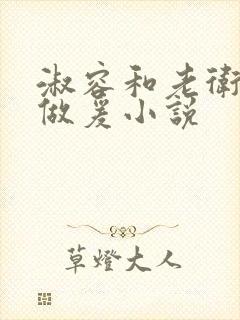 淑容和老衛
做爰小説
草燈大人